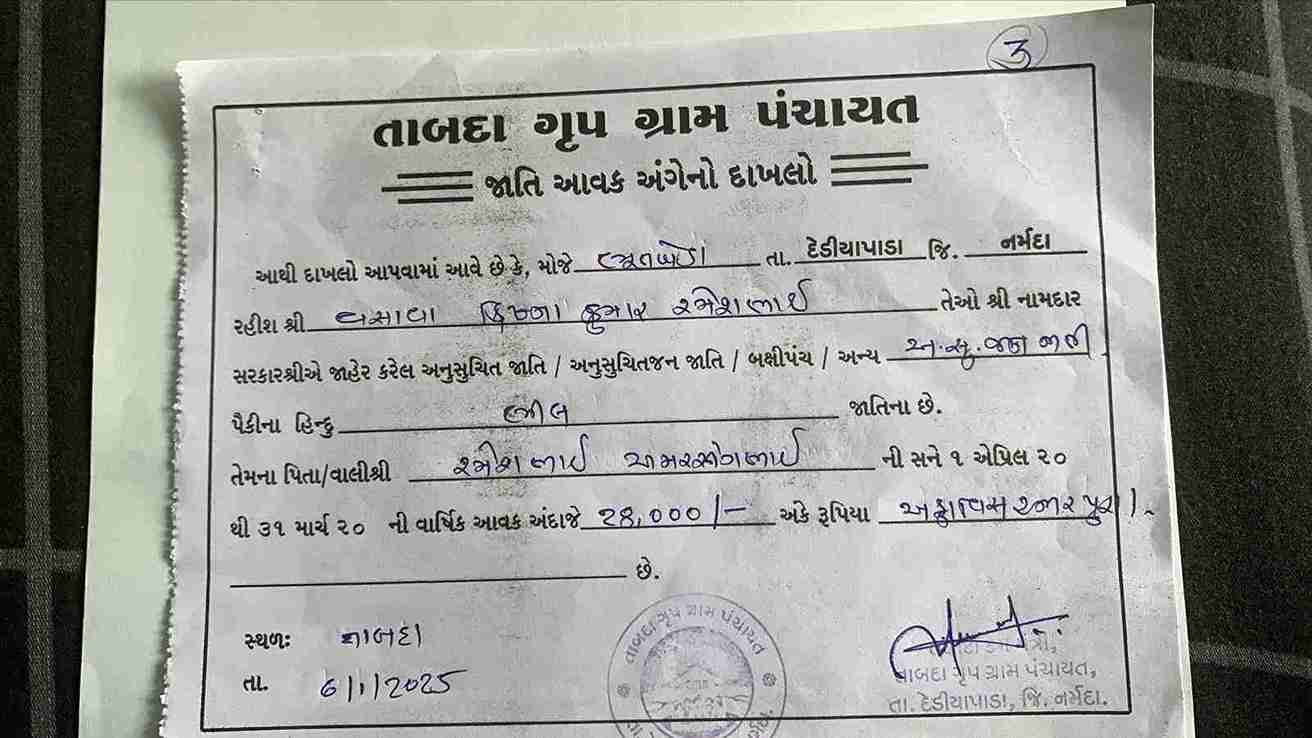 ૩
તાબદા ગૃપ ગ્રામ પંચાયત
જાતિ આવક અંગેનો દાખલો
આથી દાખલો આપવામાં આવે છે કે, મોજે ભૂતબેડા તા. દેડીયાપાડા જિ. નર્મદા
રહીશ શ્રી વસાવા ક્રિષ્ના કુમાર રમેશભાઈ તેઓ શ્રી નામદાર
સરકારશ્રીએ જાહેર કરેલ અનુસુચિત જાતિ / અનુસુચિતજન જાતિ / બક્ષીપંચ / અન્ય અ.સુ.જન જાતી
પૈકીના હિન્દુ ભીલ જાતિના છે.
તેમના પિતા/વાલીશ્રી રમેશભાઈ અમરસીંગભાઈ ની સને ૧ એપ્રિલ ૨૦
થી ૩૧ માર્ચ ૨૦ ની વાર્ષિક આવક અંદાજે 28,000/- અંકે રૂપિયા અઠ્ઠાવિસ હજાર પુરા/-
છે.
સ્થળઃ તાબદા
તા. 6/1/2025
તાબદા ગૃપ ગ્રામ પંચાયત
તાબદા ગૃપ ગ્રામ પંચાયત,
તા. દેડીયાપાડા, જિ. નર્મદા.